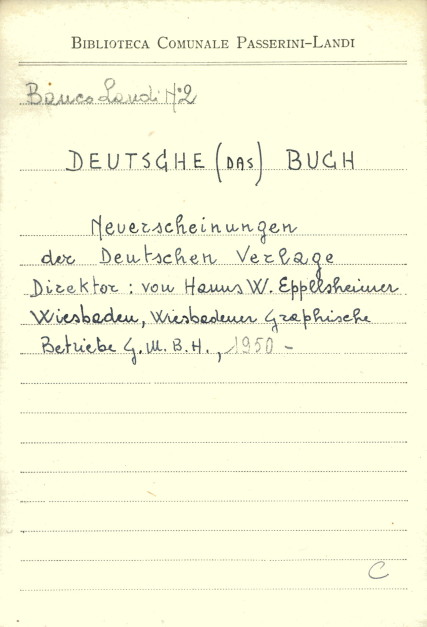 BIBLIOTECA COMUNALE PASSERINI-LANDI
Banco Landi N°2
DEUTSCHE (DAS) BUCH
Neuerscheinungen
der Deutschen Verlage
Direktor: von Hanns W. Eppelsheimer
Wiesbaden, Wiesbadener Graphische
Betriebe G.M.B.H., 1950 -
C